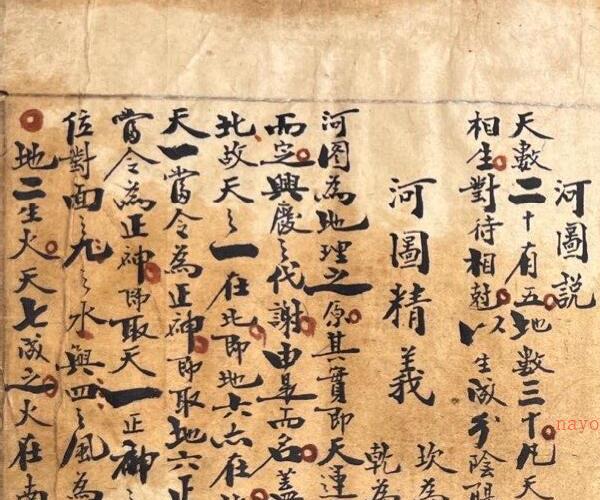 河圖説
天數二十有五地數三十凡天
相生對待相尅以生成分陰陽
河圖精義
坎為
乾為
河图為地理之原其實即天運
而定興廢之代謝由是而名蓋
北故天之一在北即地六六在
天一當令為正神即取地六正
當令為正神即取天一正神之
位對面之九之水與四之風為
地二生火天七成之火在南
nayo